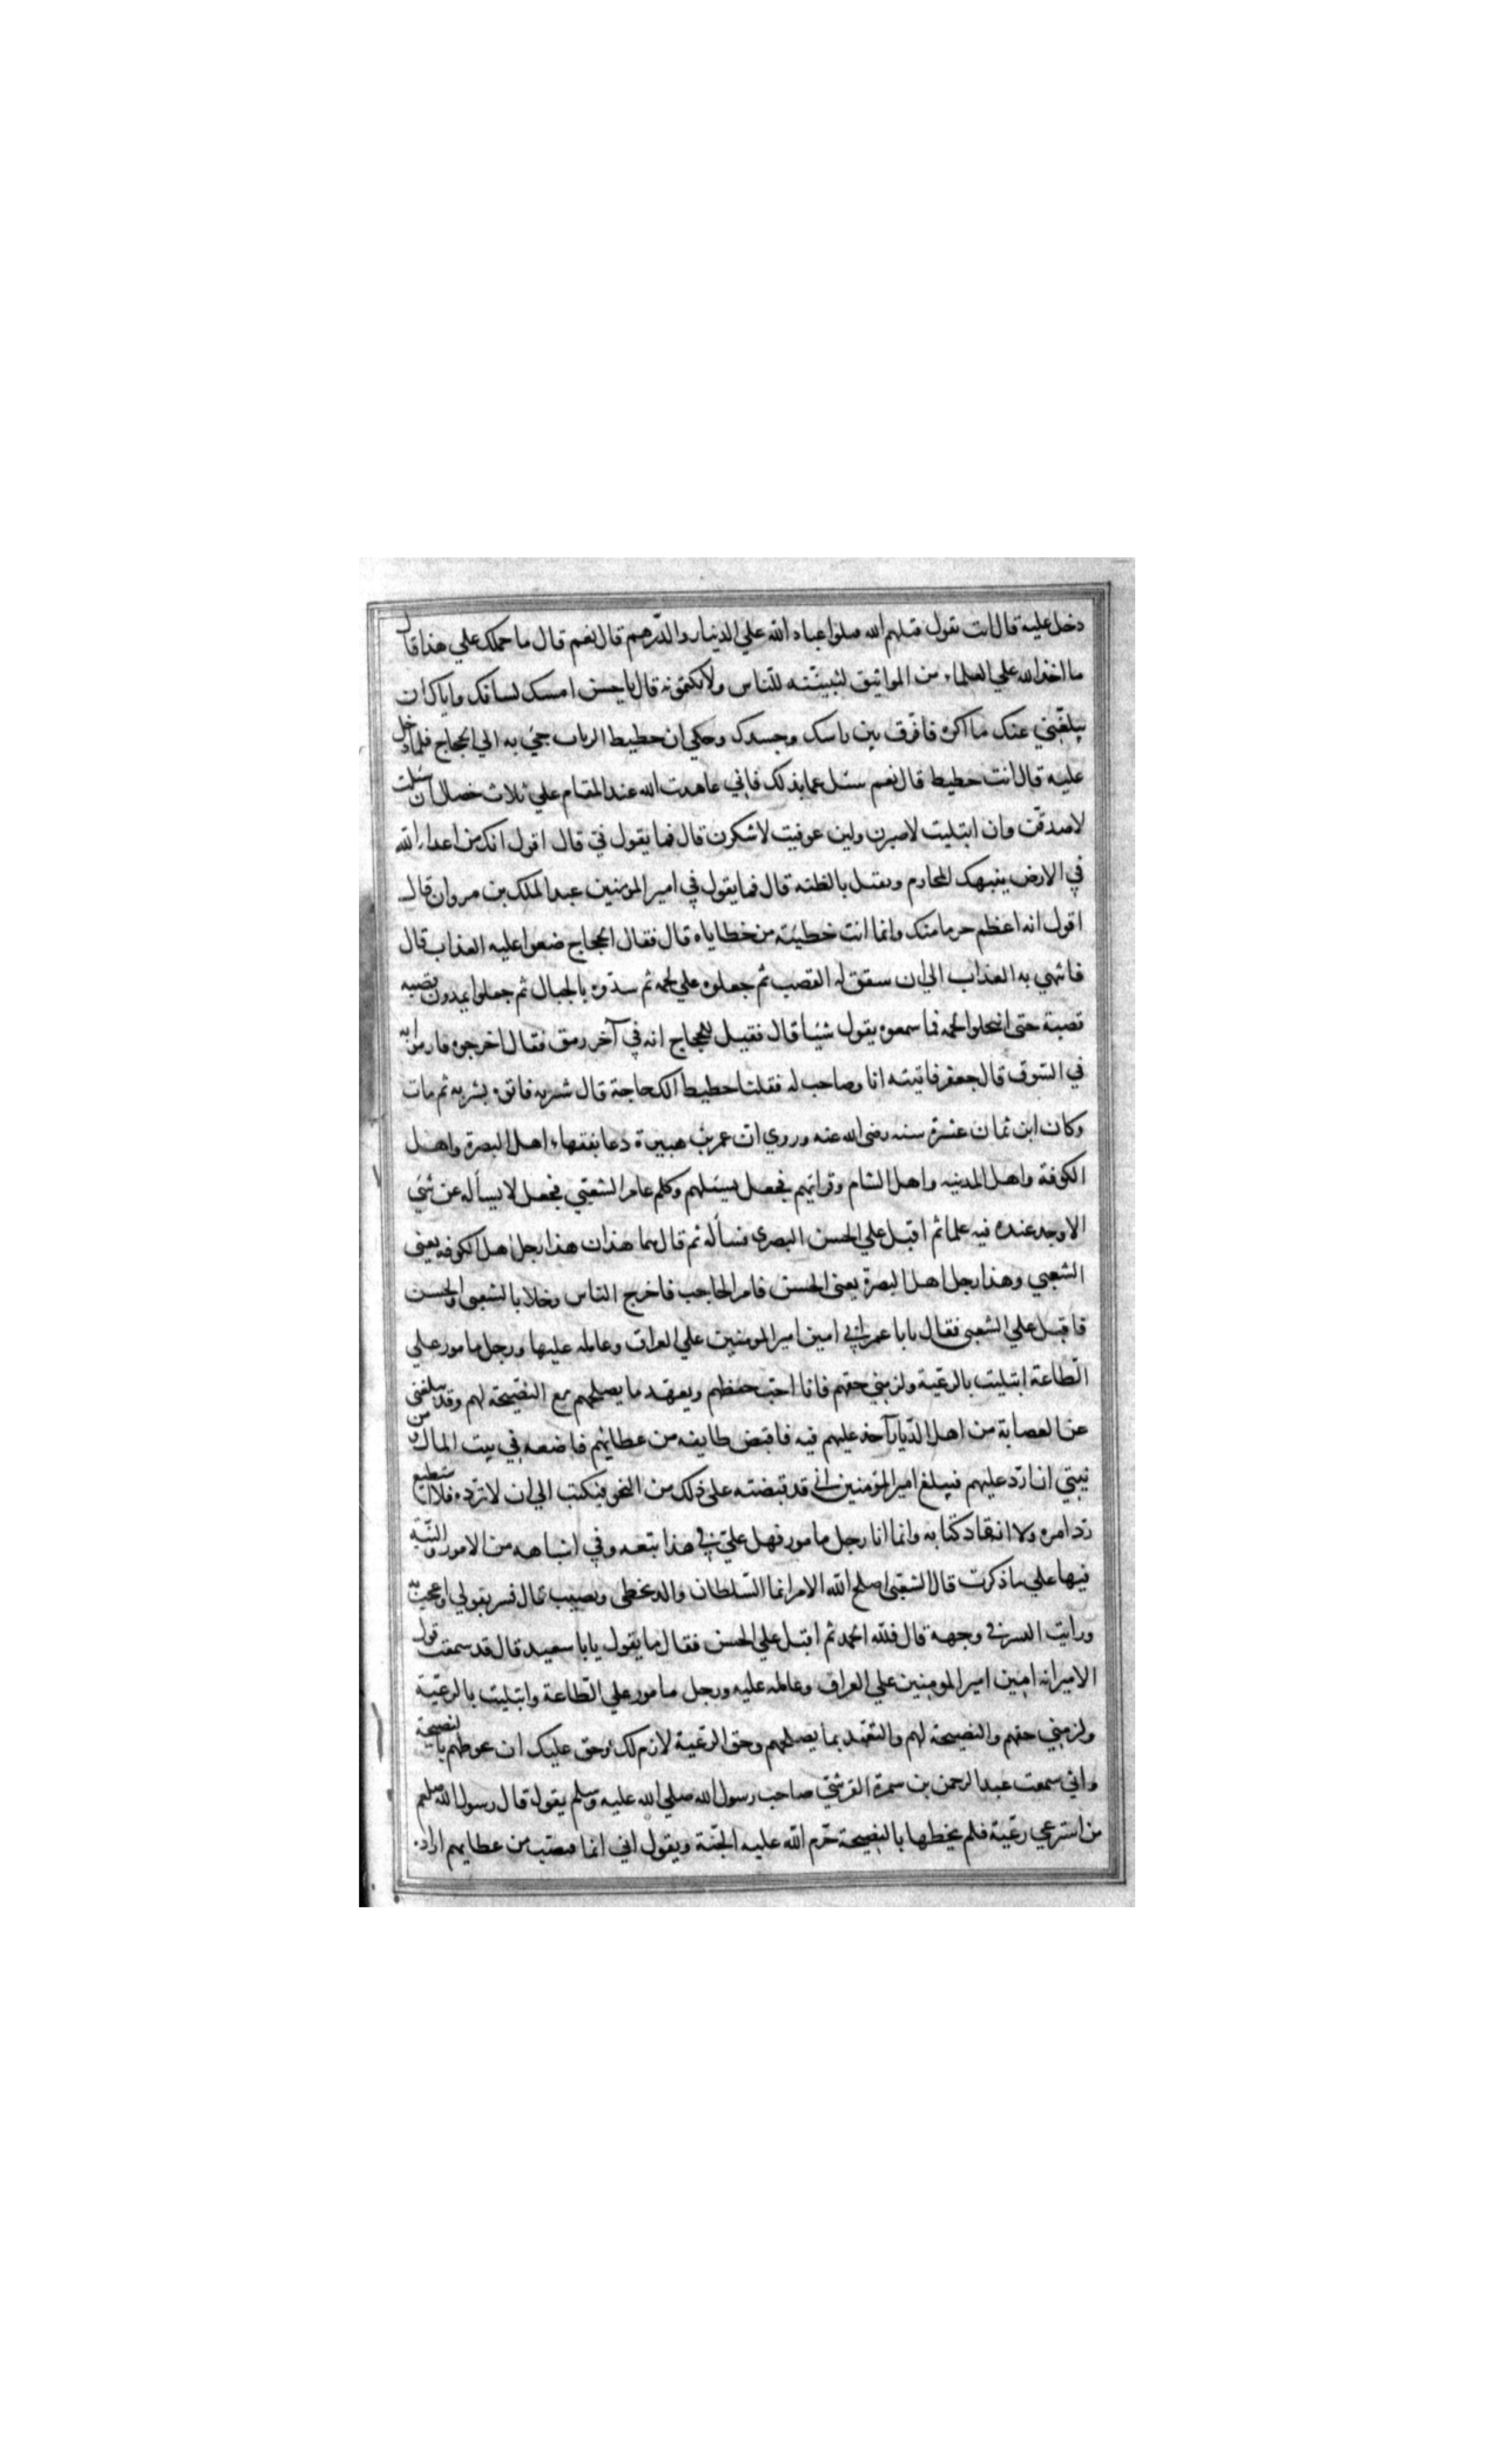 دخل عليه قال انت تقول قتلهم الله قتلوا عباد الله علي الدينار والدّرهم قال نعم قال ما حملك علي هذا قال
ما اخذ الله علي العلماء من المواثيق لتبيّننه للنّاس ولا تكتمونه قال يا حسن امسك لسانك واياك ان
يبلغني عنك ما اكره فافرق بين راسك وجسدك وحكي ان حطيط الزيات جيء به الي الحجاج فلما دخل
عليه قال انت حطيط قال نعم سئل عما بذلك فاني عاهدت الله عند المقام علي ثلاث خصال ان سئلت
لاصدقت وان ابتليت لاصبرن ولين عوفيت لاشكرن قال فما يقول في قال اقول انك من اعداء الله
في الارض ينتهك المحارم ويقتل بالظنه قال فما يقول في امير المومنين عبد الملك بن مروان قال
اقول انه اعظم جرما منك وانما انت خطيئة من خطاياه قال فقال الحجاج ضعوا عليه العذاب قال
فانتهي به العذاب الي ان سقق له القصب ثم جعلوه علي لحمه ثم سدّوه بالحبال ثم جعلوا يمدون قصبه
قصبة حتي انتحلوا لحمه فما سمعوه يقول شيئا قال فقيل للحجاج انه في آخر رمق فقال اخرجوه فارموا به
في السّوق قال جعفر فاتيته انا وصاحب له فقلنا حطيط الك حاجة قال شربه فاتوه بشربه ثم مات
وكان ابن ثمان عشرة سنه رضي الله عنه وروي ان عمر بن هبيرة دعا بفقهاء اهل البصرة واهل
الكوفة واهل المدينه واهل الشام وقرائهم فجعل يسئلهم وكلم عامر الشعبي فجعل لا يسأله عن شيء
الا وجد عنده فيه علما ثم اقبل علي الحسن البصري فسأله ثم قال هما هذان هذا رجل اهل الكوفه يعني
الشعبي وهذا رجل اهل البصرة يعني الحسن فامر الحاجب فاخرج الناس وخلا بالشعبي والحسن
فاقبل علي الشعبي فقال يابا عمر اني امين امير المومنين علي العراق وعامله عليها ورجل مامور علي
الطاعة ابتليت بالرعية ولزمني حقهم فانا احب حفظهم وبعهد ما يصلحهم مع النصيحة لهم وقد يبلغني
عن العصابة من اهل الدّيار آخذ عليهم فيه فاقبض طايفه من عطائهم فاضعه في بيت المال ومن
نيتي ان ارّد عليهم فيبلغ امير المؤمنين اني قد قبضته علي ذلك من النحو فيكتب الي ان لا ترّده فلا استطيع
رّد امره ولا انقاد كتابه وانما انا رجل مامور فهل عليّ في هذا تبعه وفي اشباهه من الامور والنيّة
فيها علي ما ذكرت قال الشعبي اصلح الله الامير انما السّلطان والد يخطي ويصيب قال فسر بقولي واعجب به
ورايت البسر في وجهه قال فلله الحمد ثم اقبل علي الحسن فقال ما يقول يابا سعيد قال قد سمعت قول
الامير انه امين امير المومنين علي العراق وعامله عليه ورجل مامور علي الطّاعة وابتليت بالرعيّة
ولزمني حقهم والنصيحة لهم والتعّهد بما يصلحهم وحق الرعية لازم لك وحق عليك ان تحوطهم بالنصيحة
واني سمعت عبد الرحمن بن سمرة القرشي صاحب رسول الله صلي الله عليه وسلم يقول قال رسول الله صلعم
من استرعي رعّية فلم يحطها بالنصيحة حّرم الله عليه الجّنة ويقول اني انما قبضت من عطايهم اراده